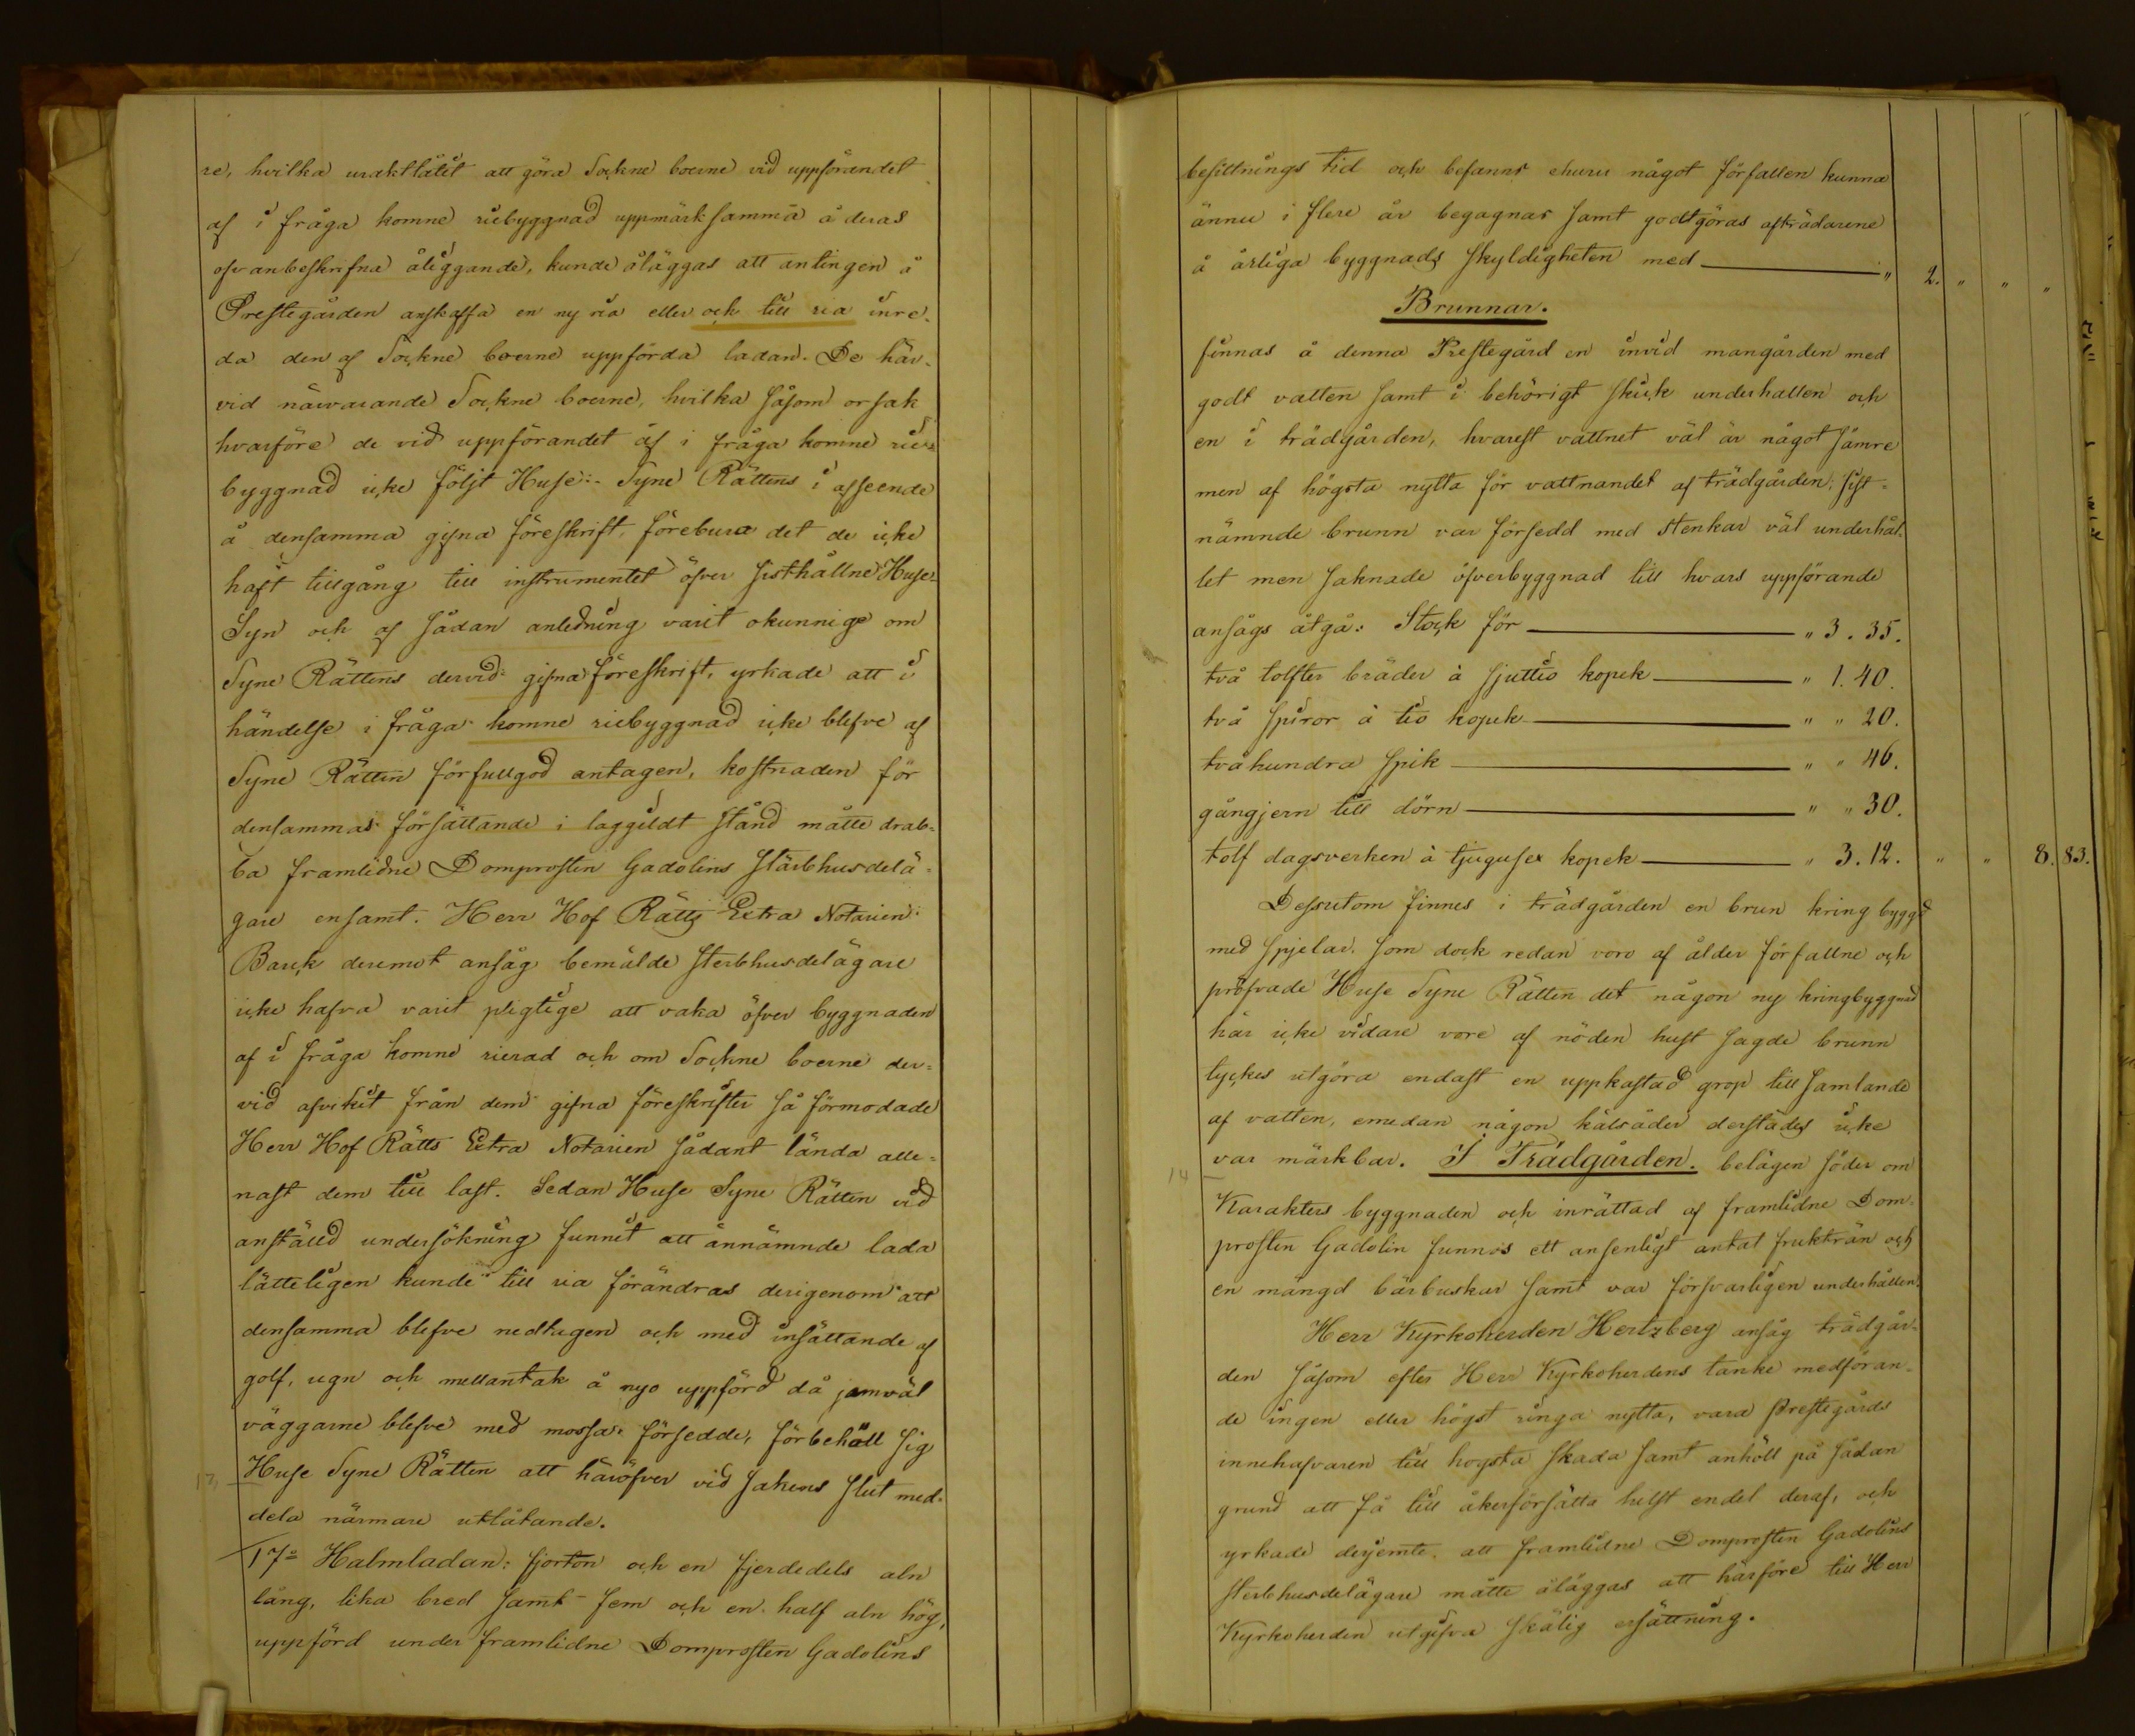 re, hvilka uraktlåtit att göra Sockne boerne vid uppförandet
af i fråga komne riebyggnad uppmärksamma å deras
ofvanbeskrifna åliggande, kunde åläggas att antingen å
Prestegården anskaffa en ny ria eller och till ria inre-
da den af Sockne boerne uppförda ladan. De här-
vid närvarande Sockne boerne, hvilka såsom orsak
hvarföre de vid uppförandet af i fråga komne rie-
byggnad icke följt Huse- Syne Rättens i afseende
å densamma gifna föreskrift, förebura det de icke
haft tillgång till instrumentet öfver sisthållne Huse-
Syn och af sådan anledning varit okunnige om
Syne Rättens dervid gifna föreskrift, yrkade att i
händelse i fråga komne riebyggnad icke blefve af
Syne Rätten för fullgod antagen, kostnaden för
densammas försättande i laggildt stånd måtte drab-
ba framlidne Domprosten Gadolins stärbhusdelä-
gare ensamt. Herr Hof Rätts Extra Notarien
Barck deremot ansåg bemälde sterbhusdelägare
icke hafva varit pligtige att vaka öfver byggnaden
af i fråga komne rierad och om Sockne boerne der-
vid afvikit från dem gifna föreskrifter så förmodade
Herr Hof Rätts Extra Notarien sådant lända alle-
nast dem till last. Sedan Huse Syne Rätten vid
anställd undersökning funnit att ännämnde lada
lätteligen kunde till ria förändras derigenom att
densamma blefve nedtagen och med insättande af
golf, ugn och mellantak å nyo uppförd då jemväl
väggarne blefve med mossa försedde, förbehåll sig
Huse Syne Rätten att häröfver vid sakens slut med-
dela närmare utlåtande.
17º Halmladan: fjorton och en fjerdedels aln
lång, lika bred samt fem och en half aln hög,
uppförd under framlidne Domprosten Gadolins
besittnings tid och befanns ehuru något förfallen kunna
ännu i flere år begagnas samt godtgöras afträdarene
å årliga byggnads skyldigheten med — " 2. " " "
Brunnar.
finnas å denna Prestegård en invid mangården med
godt vatten samt i behörigt skick underhållen och
en i trädgården, hvarest vattnet väl är något sämre
men af högsta nytta för vattnandet af trädgården; sist-
nämnde brunn var försedd med stenkar väl underhål-
let men saknade öfverbyggnad till hvars uppförande
ansågs åtgå: Stock för — " 3. 35.
två tolfter bräder à sjuttio kopek — " 1. 40.
två spiror à tio kopek — " " 20.
tvåhundra spik — " " 46.
gångjern till dörn — " " 30.
tolf dagsverken à tjugusex kopek — " 3. 12. " " 8. 83.
Dessutom finnes i trädgården en brun kring byggd
med spjelar, som dock redan voro af ålder förfallne och
pröfvade Huse Syne Rätten det någon ny kringbyggnad
här icke vidare vore af nöden hust sagde brunn
lyckes utgöra endast en uppkastad grop till samlande
af vatten, emedan någon kälsåder derstädes icke
14 var märkbar. I Trädgården. belägen söder om
Karakters byggnaden och inrättad af framlidne Dom-
prosten Gadolin funnos ett ansenligt antal frukträn och
en mängd bärbuskar samt var försvarligen underhållen.
Herr Kyrkoherden Hertzberg ansåg trädgår-
den såsom efter Herr Kyrkoherdens tanke medföran-
de ingen eller högst ringa nytta, vara Prestegårds
innehafvaren till högsta skada samt anhöll på sådan
grund att få till åker försätta helst endel deraf, och
yrkade derjemte, att framlidne Domprosten Gadolins
sterbhusdelägare måtte åläggas att härföre till Herr
Kyrkoherden utgifva skälig ersättning.